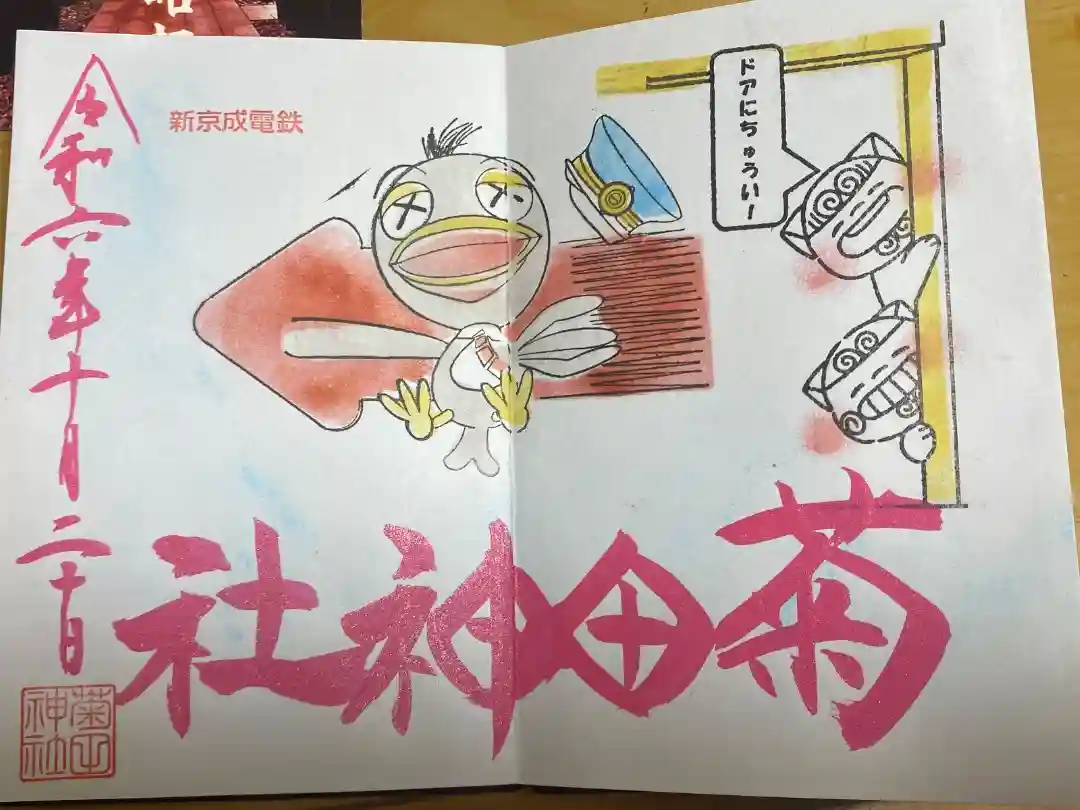 ドアにちゅうい!
新京成電鉄
菊田神社
令和六年十月二十日
菊田神社